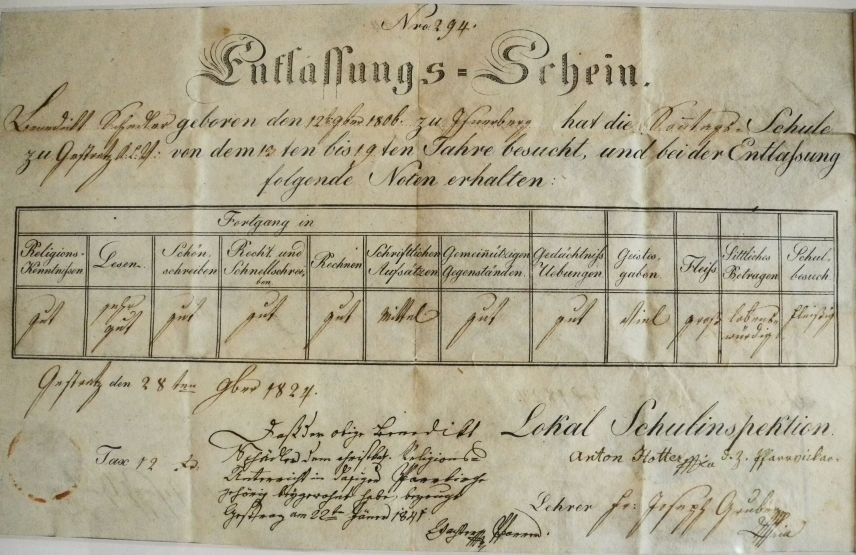 Nro 294.
Entlassungs-Schein.
Benedikt Schedler geboren den 12t 9ber 1806. zu hat die Sonntags-Schule
zu Gestratz von dem 13ten bis 19ten Jahre besucht, und bei der Entlassung
folgende Noten erhalten:
Fortgang in
Religions-Kenntnissen Lesen. Schön schreiben Recht und Schnellschreiben Rechnen Schriftlichen Aufsätzen Gemeinützigen Gegenständen. Gedächtniß Uebungen Geistes gaben. Fleiß Sittliches Betragen Schul besuch
gut sehr gut gut gut gut Mittel gut gut Viel groß lobenswürdig fleißig
Gestratz den 28ten 9ber 1824.
Lokal Schulinspektion.
Anton Hotter d. Z. Pfarrvicar
Tax 12
Daß der obige Benedikt
Schädler dem christl. Religions-
Unterricht in dasiger Pfarrkirche
gehörig beygewohnt habe, bezeugt
Gestraz am 22ten Jäner 1841
Pfarrer.
Lehrer Joseph Gruber